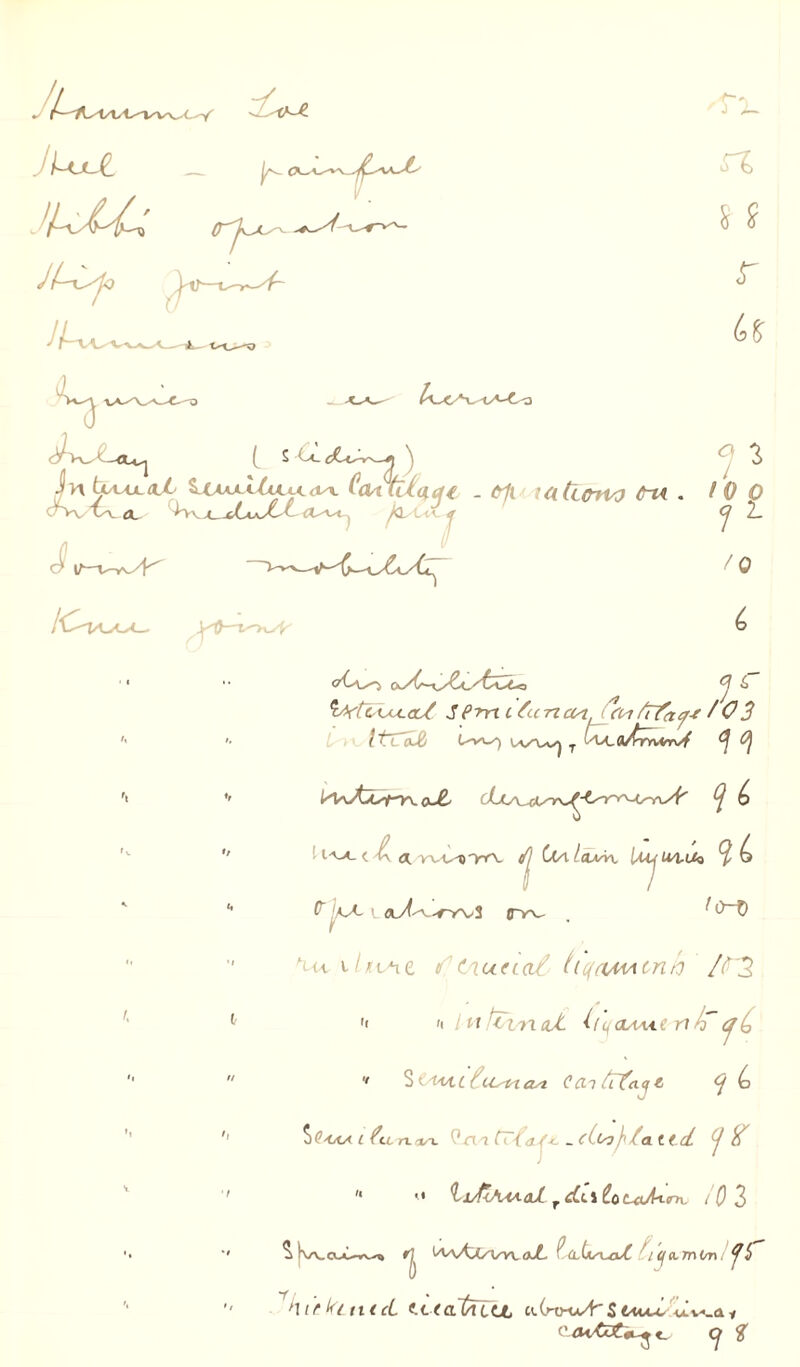 Hammer Toe 52
Heel — painful 56
Hibbs operation 88
Hip Joint 5
Humerus 68
Injuries as heroines
Inlay (sliding) 93
Internal Semilunar Cartilage - operations on . 100
Intra medullary plug 92
Joint mobility 10
Knee joint 6
" " disabilities 95
External Semilunar Cartilage 103
" " injury, treatment 99
" " internal derangement 96
" " mechanism of certain injuries 96
" " operations on . 100
" " rupture of Crucial ligaments 103
" " " " Internal ligaments 96
" " " Semilunar cartilage 96
" " Semilunar Cartilage - displaced 98
" " " " External, dislocation 103
" " Sprains of internal lateral ligament 95
" " Thickened cicatrice about Semilunar
cartilage 98